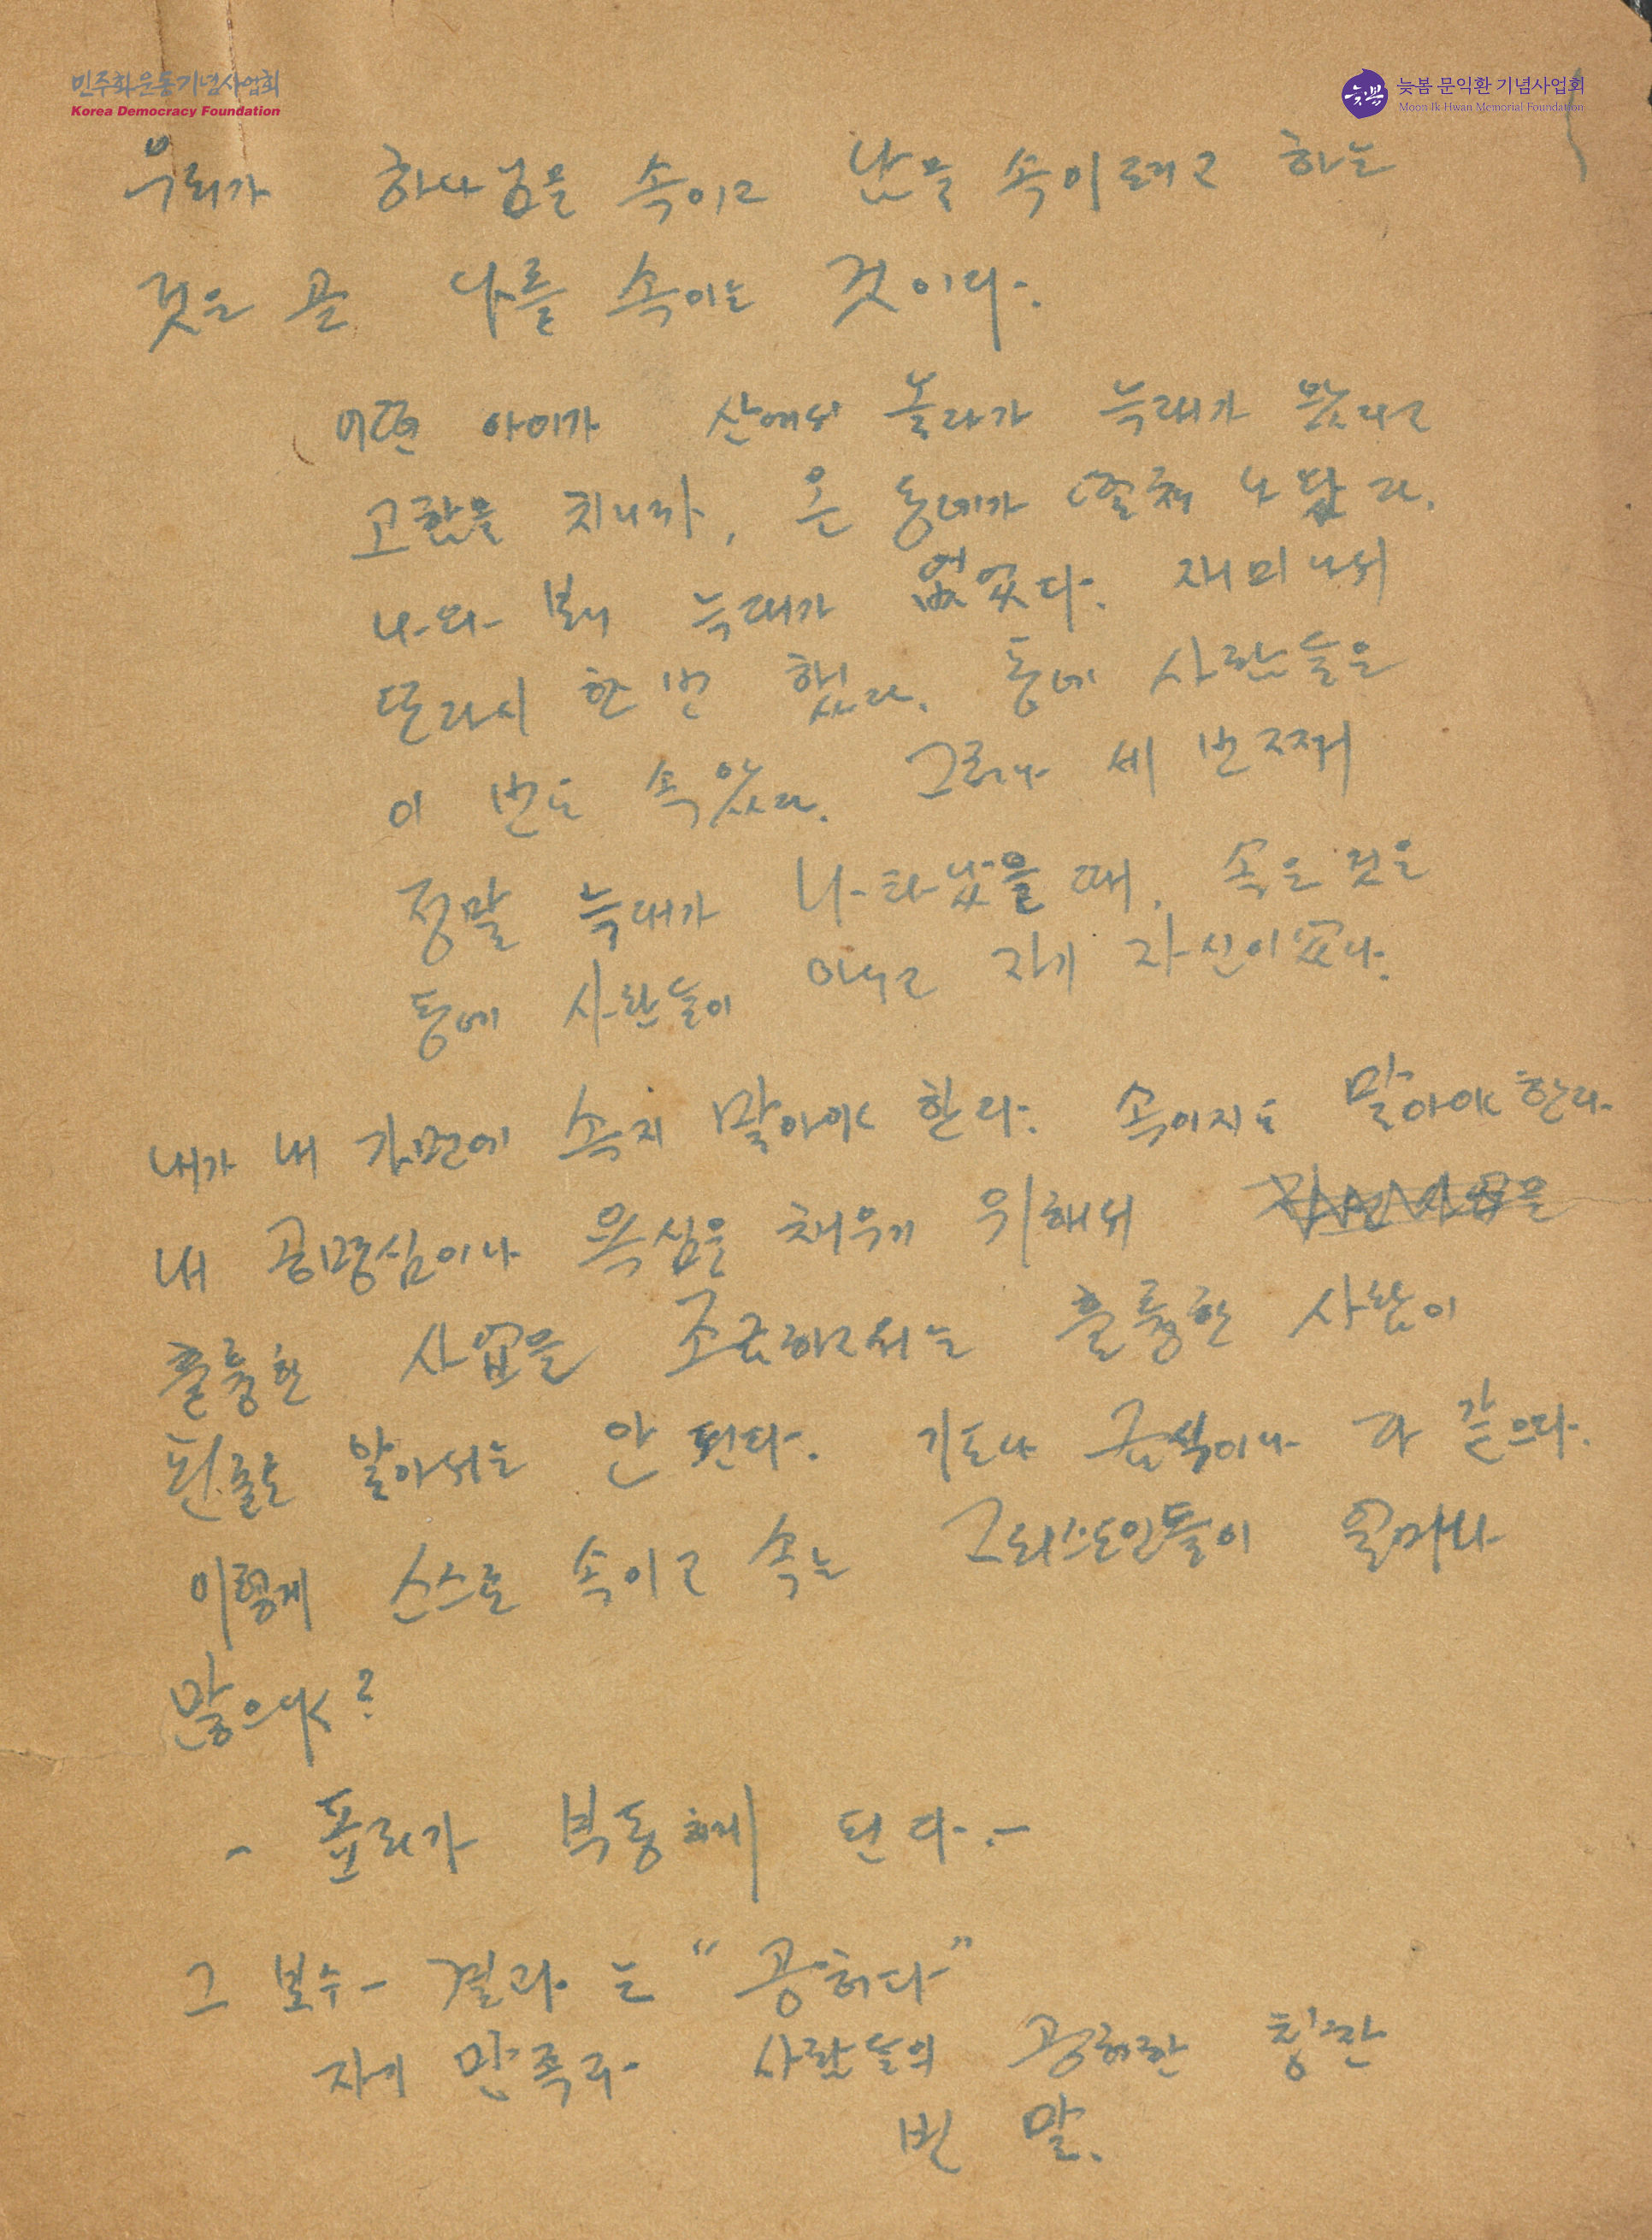 민주화운동기념사업회
Korea Democracy Foundation
늦봄
늦봄 문익환 기념사업회
Moon Ik Hwan Memorial Foundation
우리가 하나님을 속이고 남을 속이려고 하는
것은 곧 나를 속이는 것이다.
어떤 아이가 산에서 놀다가 늑대가 왔다고
고함을 치니까, 온 동네가
나와 보니 늑대가 없었다. 재미나서
또다시 한 번 했다. 동네 사람들은
이 번도 속았다. 그러나 세 번째
정말 늑대가 나타났을 때, 속은 것은
동네 사람들이 아니고 자기 자신이었다.
내가 내 가면에 속지 말아야 한다. 속이지도 말아야 한다.
내 공명심이나 욕심을 채우기 위해서
훌륭한 사업을 조금하고서는 훌륭한 사람이
된줄로 알아서는 안 된다. 기도나 금식이나 다 같으다.
이렇게 스스로 속이고 속는 그리스도인들이 얼마나
많으냐?
- 표리가 부동하게 된다. -
그 보수- 결과는 "공허다"
자기 만족과 사람들의 공허한 칭찬
빈 말.